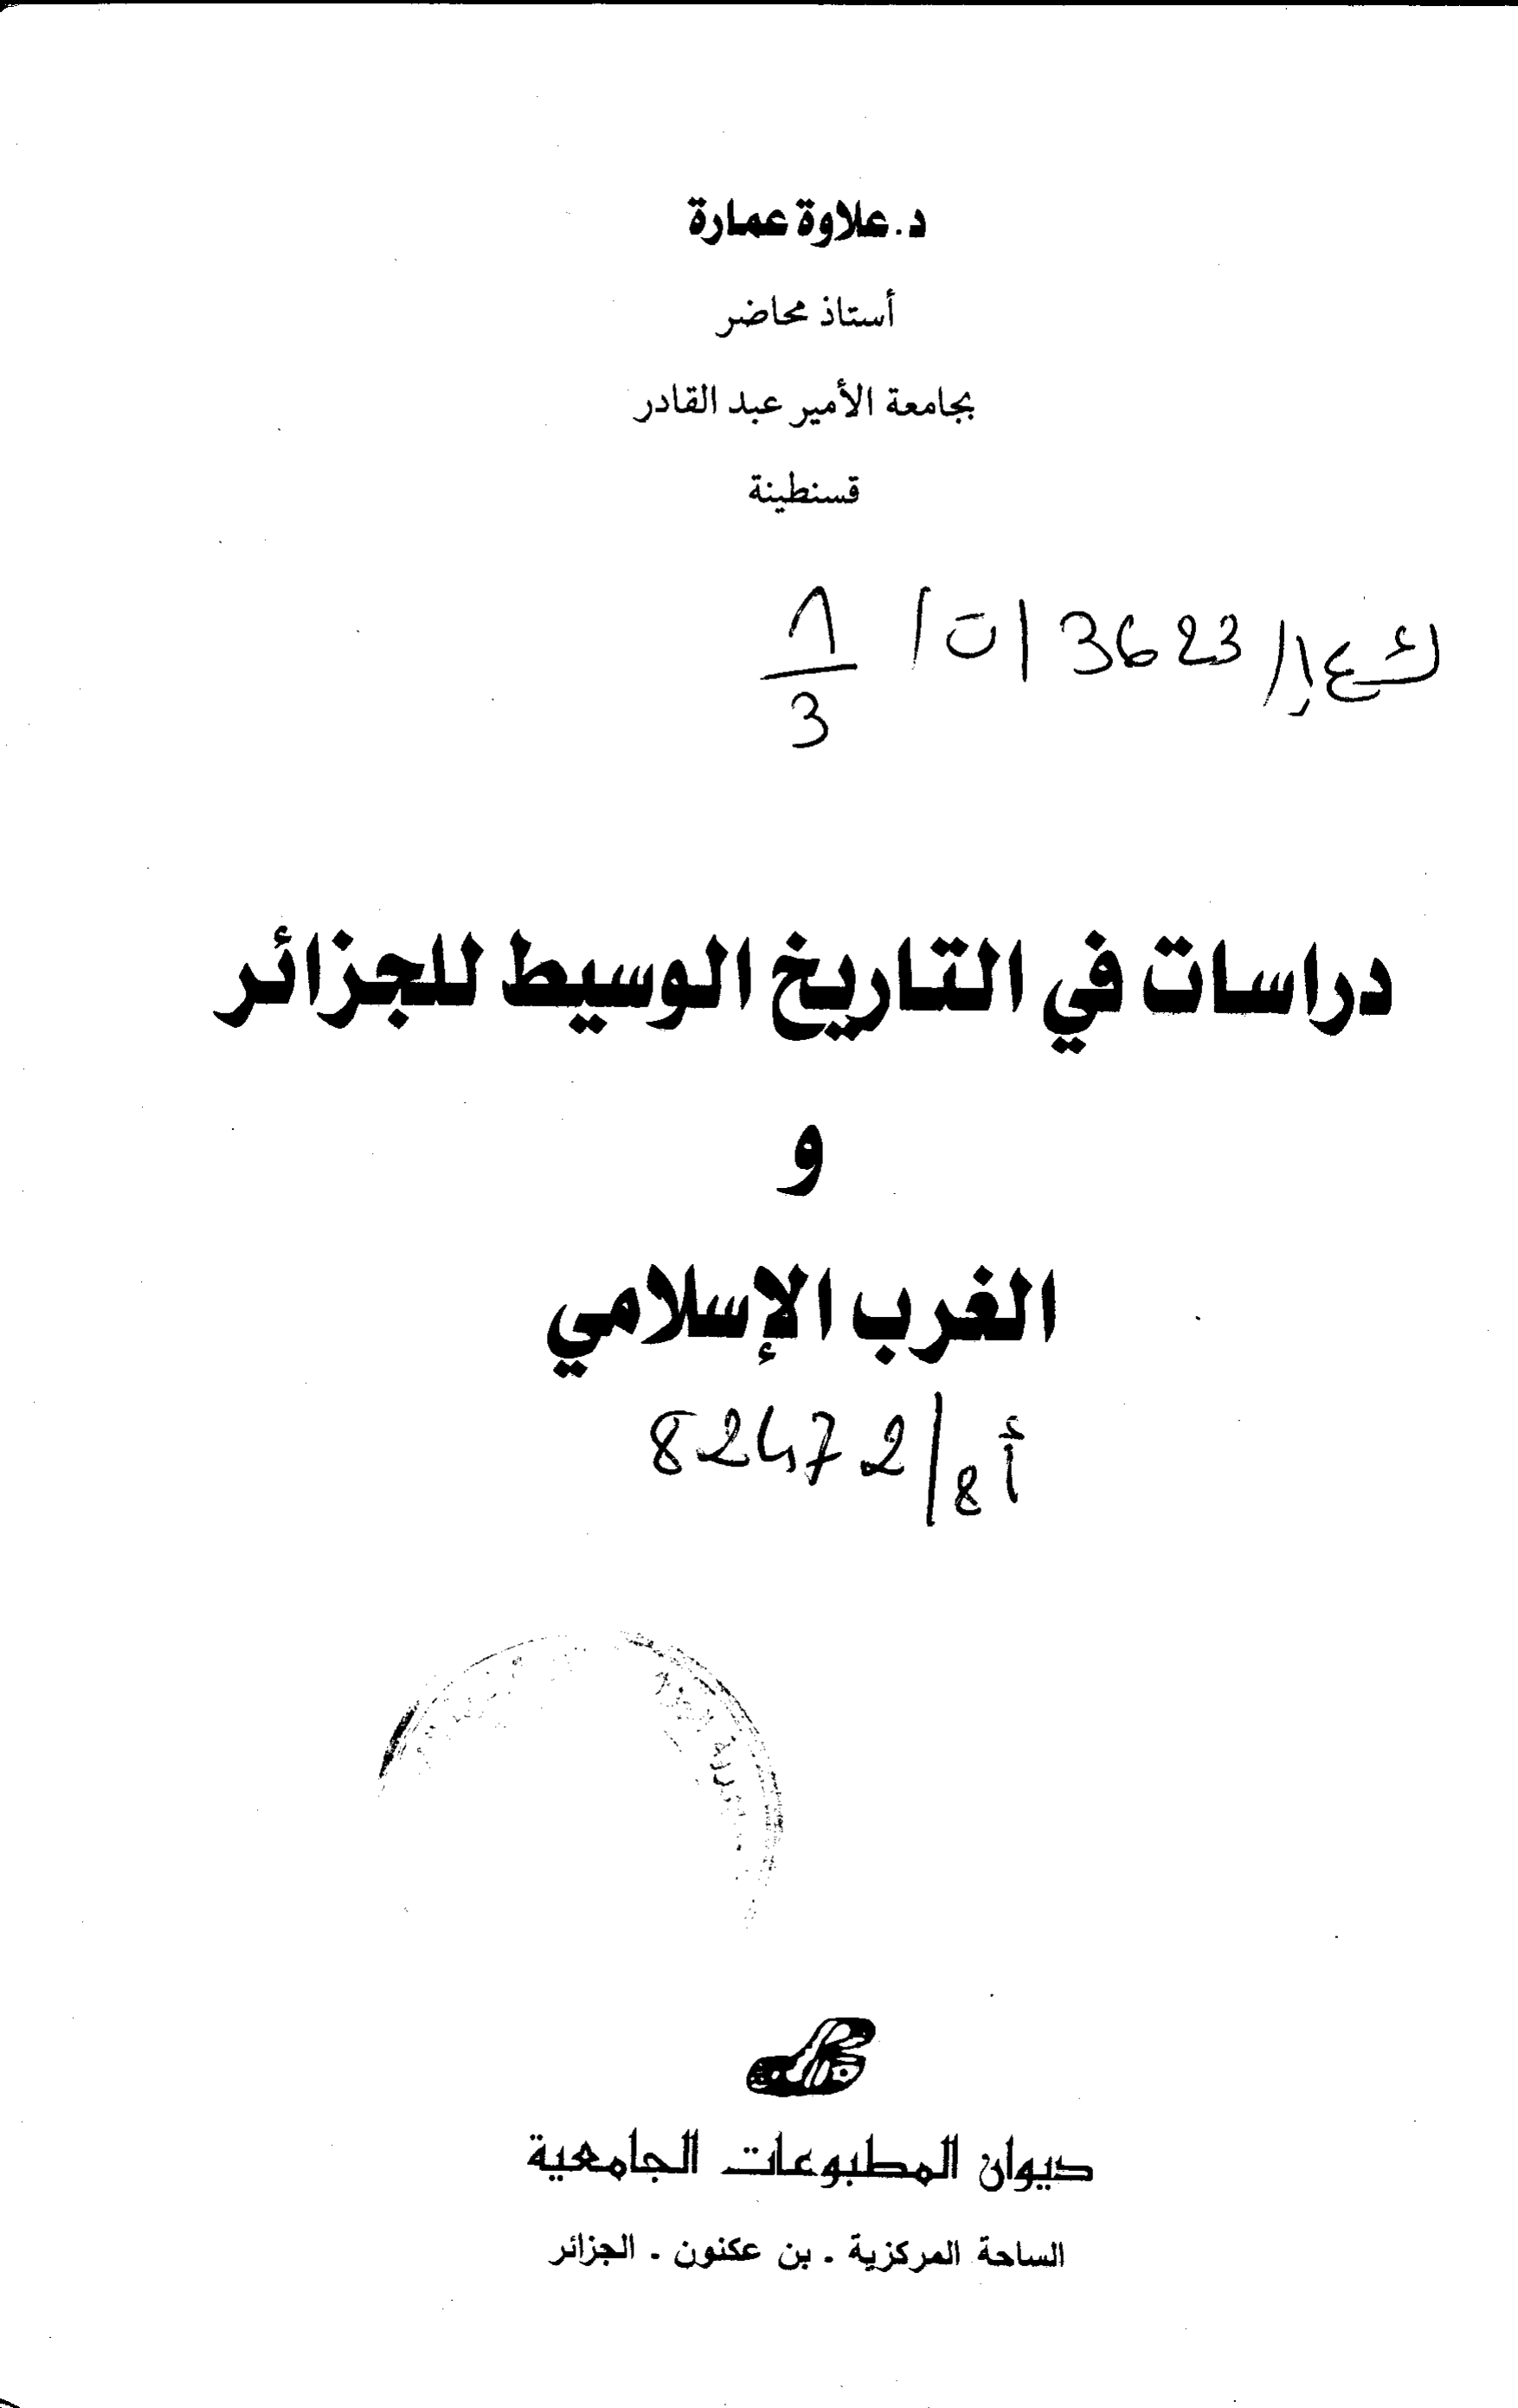 د. علاوة عمارة
أستاذ محاضر
بجامعة الأمير عبد القادر
قسنطينة
3623
1
3
دراسات في التاريخ الوسيط للجزائر
و
الغرب الإسلامي
أ8/82472
ديوان المطبوعات الجامعية
الساحة المركزية - بن عكنون - الجزائر